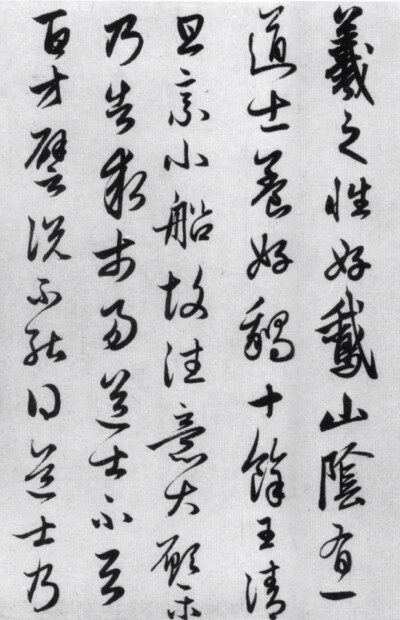 羲之性好鵞山陰有一
道士養好鵝十餘王清
旦乘小船故往意大願樂
乃告求市易道士不与
百方譬說不能得道士乃